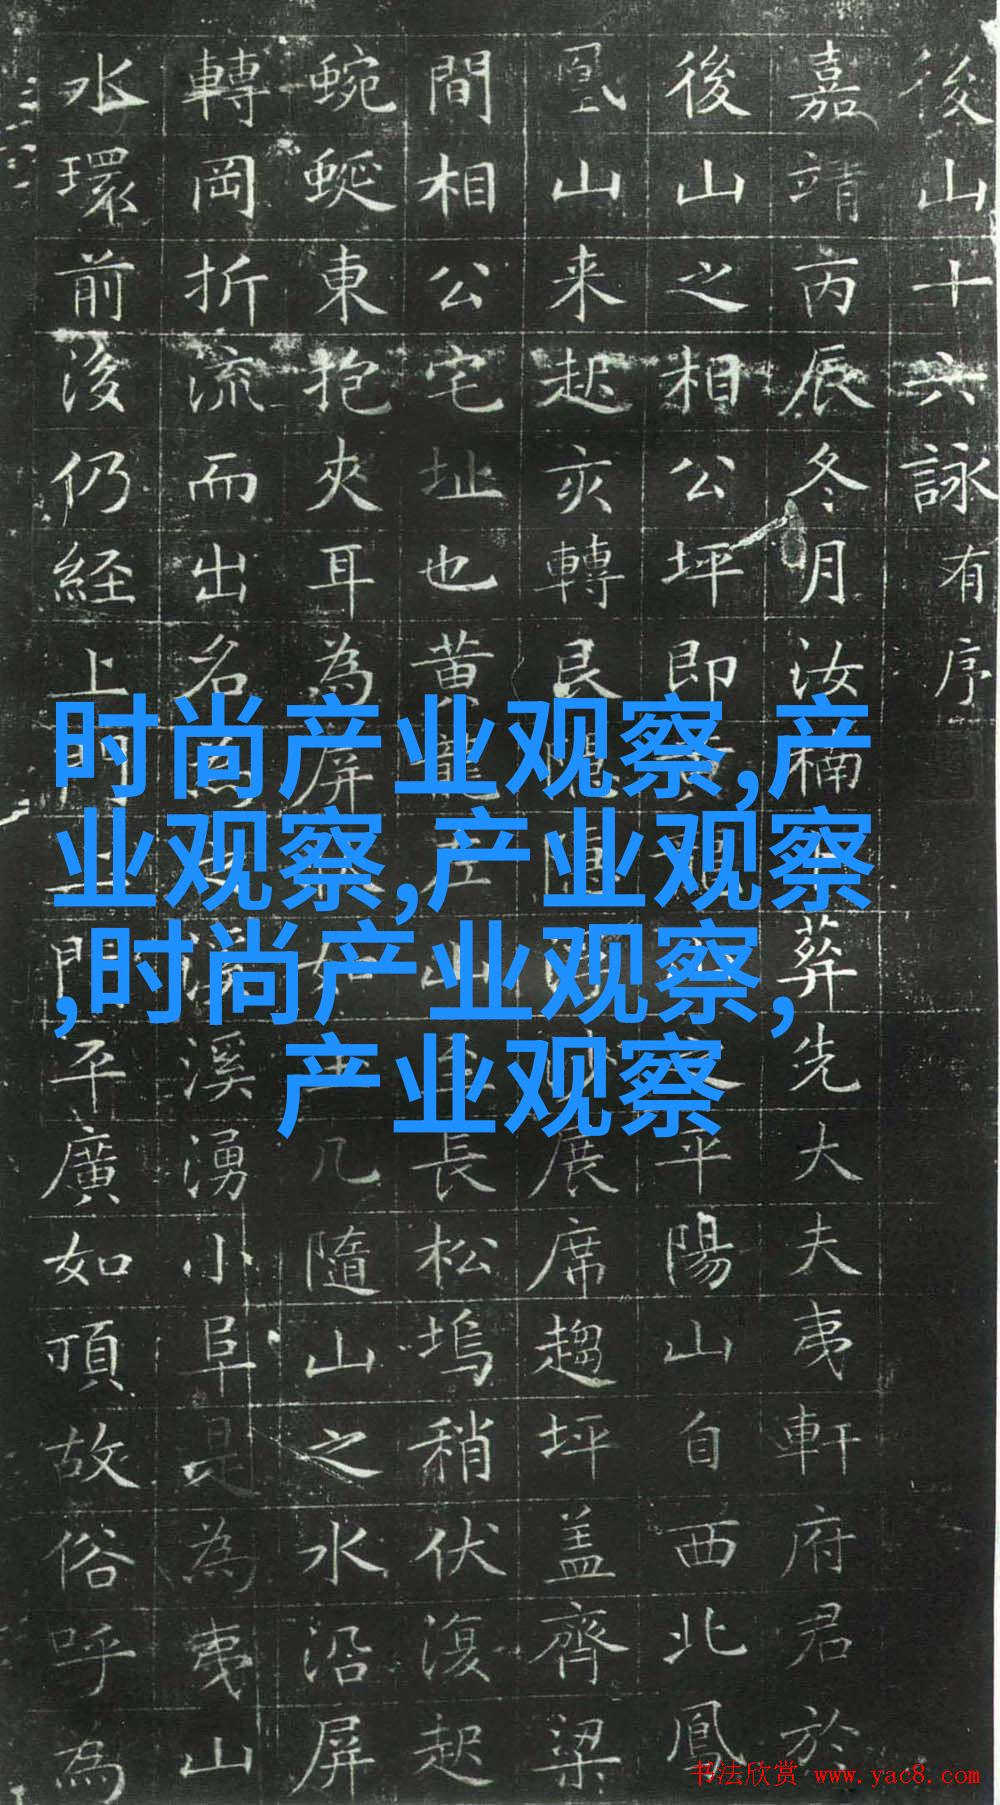 後山十六詠有序
嘉靖丙辰冬月汝楠葬先大夫夷軒府君於
後山之相公坪即平陽山自西北鳳
凰山来起亥轉艮展席趨坪盖齊梁
間相公宅址也黄龍左山長松塢稍伏復起
蜿蜒東抱夾耳為屏如几隨山之水沿屏
轉岡折流而出名為溪溪湧小阜是為夷山
水環前後仍経上門上門平廣如頂故俗呼為
时尚产业观察,产
业观察,产业观察
,时尚产业观察,
产业观察
书法欣赏 www.yac8.com